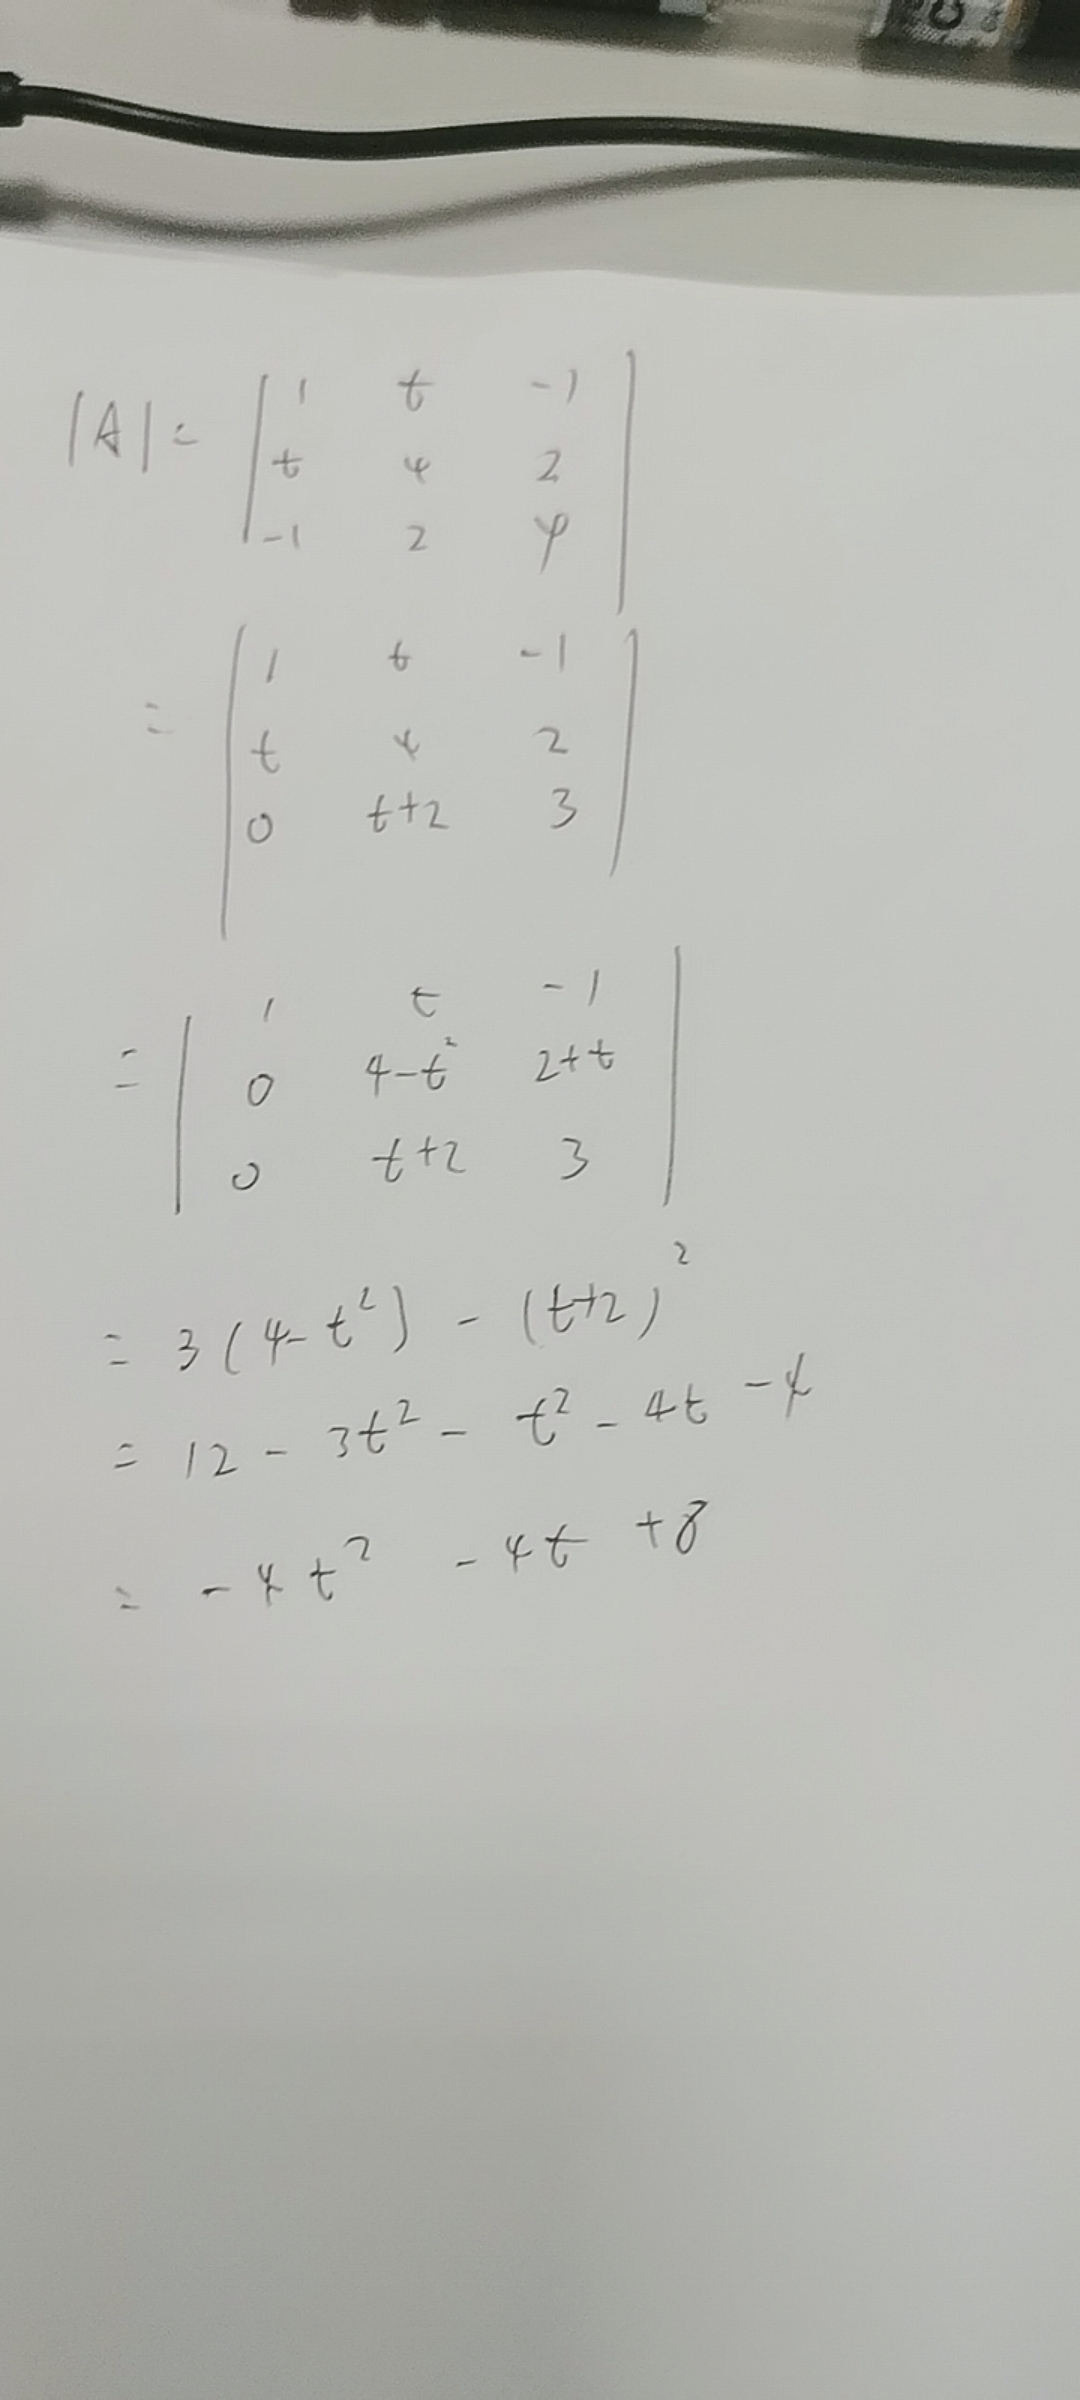 |A| = | 1 t -1 |
| t 4 2 |
| -1 2 4 |
= | 1 t -1 |
| t 4 2 |
| 0 t+2 3 |
= | 1 t -1 |
| 0 4-t² 2+t |
| 0 t+2 3 |
= 3(4-t²) - (t+2)²
= 12 - 3t² - t² - 4t - 4
= -4t² - 4t + 8